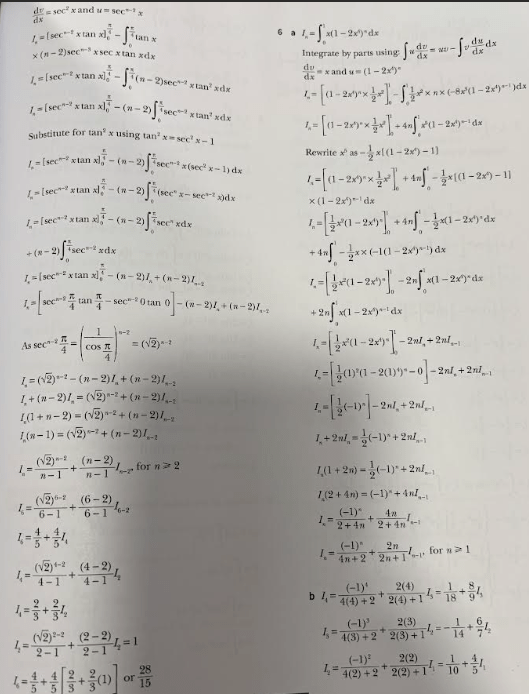 dv/dx = sec² x and u = secⁿ⁻² x
Iₙ = [secⁿ⁻² x tan x]₀^(π/4) − ∫₀^(π/4) tan x
× (n − 2)secⁿ⁻³ x sec x tan x dx
Iₙ = [secⁿ⁻² x tan x]₀^(π/4) − ∫₀^(π/4) (n − 2)secⁿ⁻² x tan² x dx
Iₙ = [secⁿ⁻² x tan x]₀^(π/4) − (n − 2)∫₀^(π/4) secⁿ⁻² x tan² x dx
Substitute for tan² x using tan² x = sec² x − 1
Iₙ = [secⁿ⁻² x tan x]₀^(π/4) − (n − 2)∫₀^(π/4) secⁿ⁻² x (sec² x − 1) dx
Iₙ = [secⁿ⁻² x tan x]₀^(π/4) − (n − 2)∫₀^(π/4) (secⁿ x − secⁿ⁻² x)dx
Iₙ = [secⁿ⁻² x tan x]₀^(π/4) − (n − 2)∫₀^(π/4) secⁿ x dx
+ (n − 2)∫₀^(π/4) secⁿ⁻² x dx
Iₙ = [secⁿ⁻² x tan x]₀^(π/4) − (n − 2)Iₙ + (n − 2)Iₙ₋₂
Iₙ = [secⁿ⁻² π/4 tan π/4 − secⁿ⁻² 0 tan 0] − (n − 2)Iₙ + (n − 2)Iₙ₋₂
As secⁿ⁻² π/4 = (1/(cos π/4))ⁿ⁻² = (√2)ⁿ⁻²
Iₙ = (√2)ⁿ⁻² − (n − 2)Iₙ + (n − 2)Iₙ₋₂
Iₙ + (n − 2)Iₙ = (√2)ⁿ⁻² + (n − 2)Iₙ₋₂
Iₙ(1 + n − 2) = (√2)ⁿ⁻² + (n − 2)Iₙ₋₂
Iₙ(n − 1) = (√2)ⁿ⁻² + (n − 2)Iₙ₋₂
Iₙ = (√2)ⁿ⁻²/(n − 1) + (n − 2)/(n − 1) Iₙ₋₂, for n ≥ 2
I₆ = (√2)⁶⁻²/(6 − 1) + (6 − 2)/(6 − 1) I₆₋₂
I₆ = 4/5 + 4/5 I₄
I₄ = (√2)⁴⁻²/(4 − 1) + (4 − 2)/(4 − 1) I₂
I₄ = 2/3 + 2/3 I₂
I₂ = (√2)²⁻²/(2 − 1) + (2 − 2)/(2 − 1) I₀ = 1
I₆ = 4/5 + 4/5 [2/3 + 2/3 (1)] or 28/15
6 a Iₙ = ∫₀¹ x(1 − 2x⁴)ⁿ dx
Integrate by parts using: ∫u dv/dx = uv − ∫v du/dx dx
dv/dx = x and u = (1 − 2x⁴)ⁿ
Iₙ = [(1 − 2x⁴)ⁿ × 1/2 x²]₀¹ − ∫₀¹ 1/2 x² × n × (−8x³(1 − 2x⁴)ⁿ⁻¹)dx
Iₙ = [(1 − 2x⁴)ⁿ × 1/2 x²]₀¹ + 4n∫₀¹ x⁵(1 − 2x⁴)ⁿ⁻¹ dx
Rewrite x⁵ as −1/2 x[(1 − 2x⁴) − 1]
Iₙ = [(1 − 2x⁴)ⁿ × 1/2 x²]₀¹ + 4n∫₀¹ −1/2 x[(1 − 2x⁴) − 1]
× (1 − 2x⁴)ⁿ⁻¹ dx
Iₙ = [1/2 x²(1 − 2x⁴)ⁿ]₀¹ + 4n∫₀¹ −1/2 x(1 − 2x⁴)ⁿ dx
+ 4n∫₀¹ −1/2 x × (−1(1 − 2x⁴)ⁿ⁻¹) dx
Iₙ = [1/2 x²(1 − 2x⁴)ⁿ]₀¹ − 2n∫₀¹ x(1 − 2x⁴)ⁿ dx
+ 2n∫₀¹ x(1 − 2x⁴)ⁿ⁻¹ dx
Iₙ = [1/2 x²(1 − 2x⁴)ⁿ]₀¹ − 2nIₙ + 2nIₙ₋₁
Iₙ = [1/2 (1)²(1 − 2(1)⁴)ⁿ − 0] − 2nIₙ + 2nIₙ₋₁
Iₙ = [1/2 (−1)ⁿ] − 2nIₙ + 2nIₙ₋₁
Iₙ + 2nIₙ = 1/2 (−1)ⁿ + 2nIₙ₋₁
Iₙ(1 + 2n) = 1/2 (−1)ⁿ + 2nIₙ₋₁
Iₙ(2 + 4n) = (−1)ⁿ + 4nIₙ₋₁
Iₙ = (−1)ⁿ/(2 + 4n) + 4n/(2 + 4n) Iₙ₋₁
Iₙ = (−1)ⁿ/(4n + 2) + 2n/(2n + 1) Iₙ₋₁, for n ≥ 1
b I₄ = (−1)⁴/(4(4) + 2) + 2(4)/(2(4) + 1) I₃ = 1/18 + 8/9 I₃
I₃ = (−1)³/(4(3) + 2) + 2(3)/(2(3) + 1) I₂ = −1/14 + 6/7 I₂
I₂ = (−1)²/(4(2) + 2) + 2(2)/(2(2) + 1) I₁ = 1/10 + 4/5 I₁